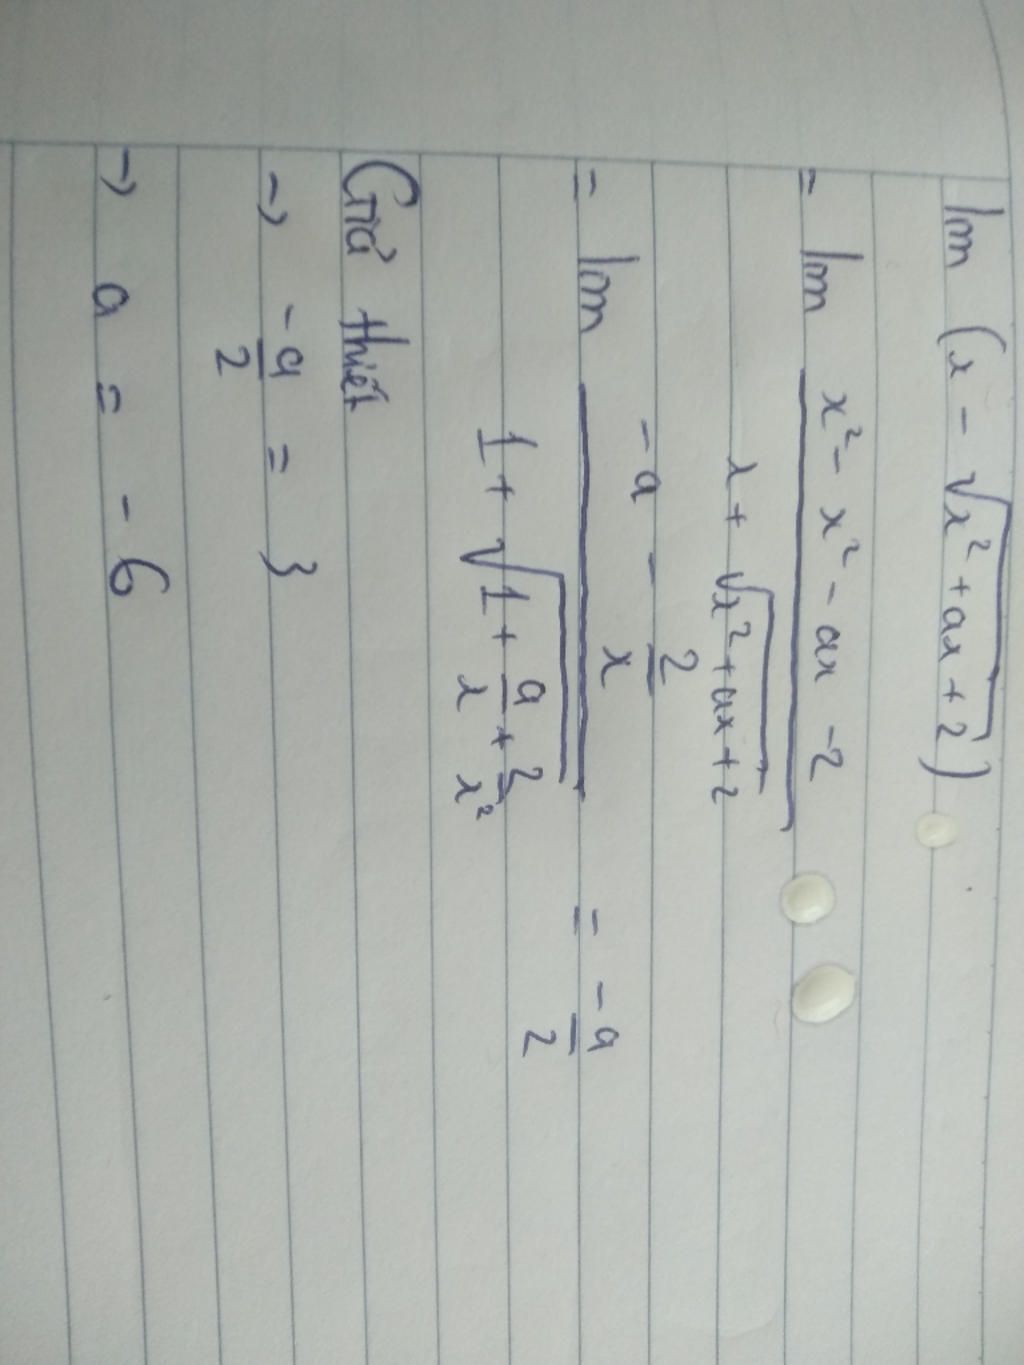 lim (x - √(x² + ax + 2))
= lim (x² - x² - ax - 2)/(x + √(x² + ax + 2))
= lim (-a - 2/x)/(1 + √(1 + a/x + 2/x²)) = -a/2
Giả thiết
→ -a/2 = 3
→ a = -6